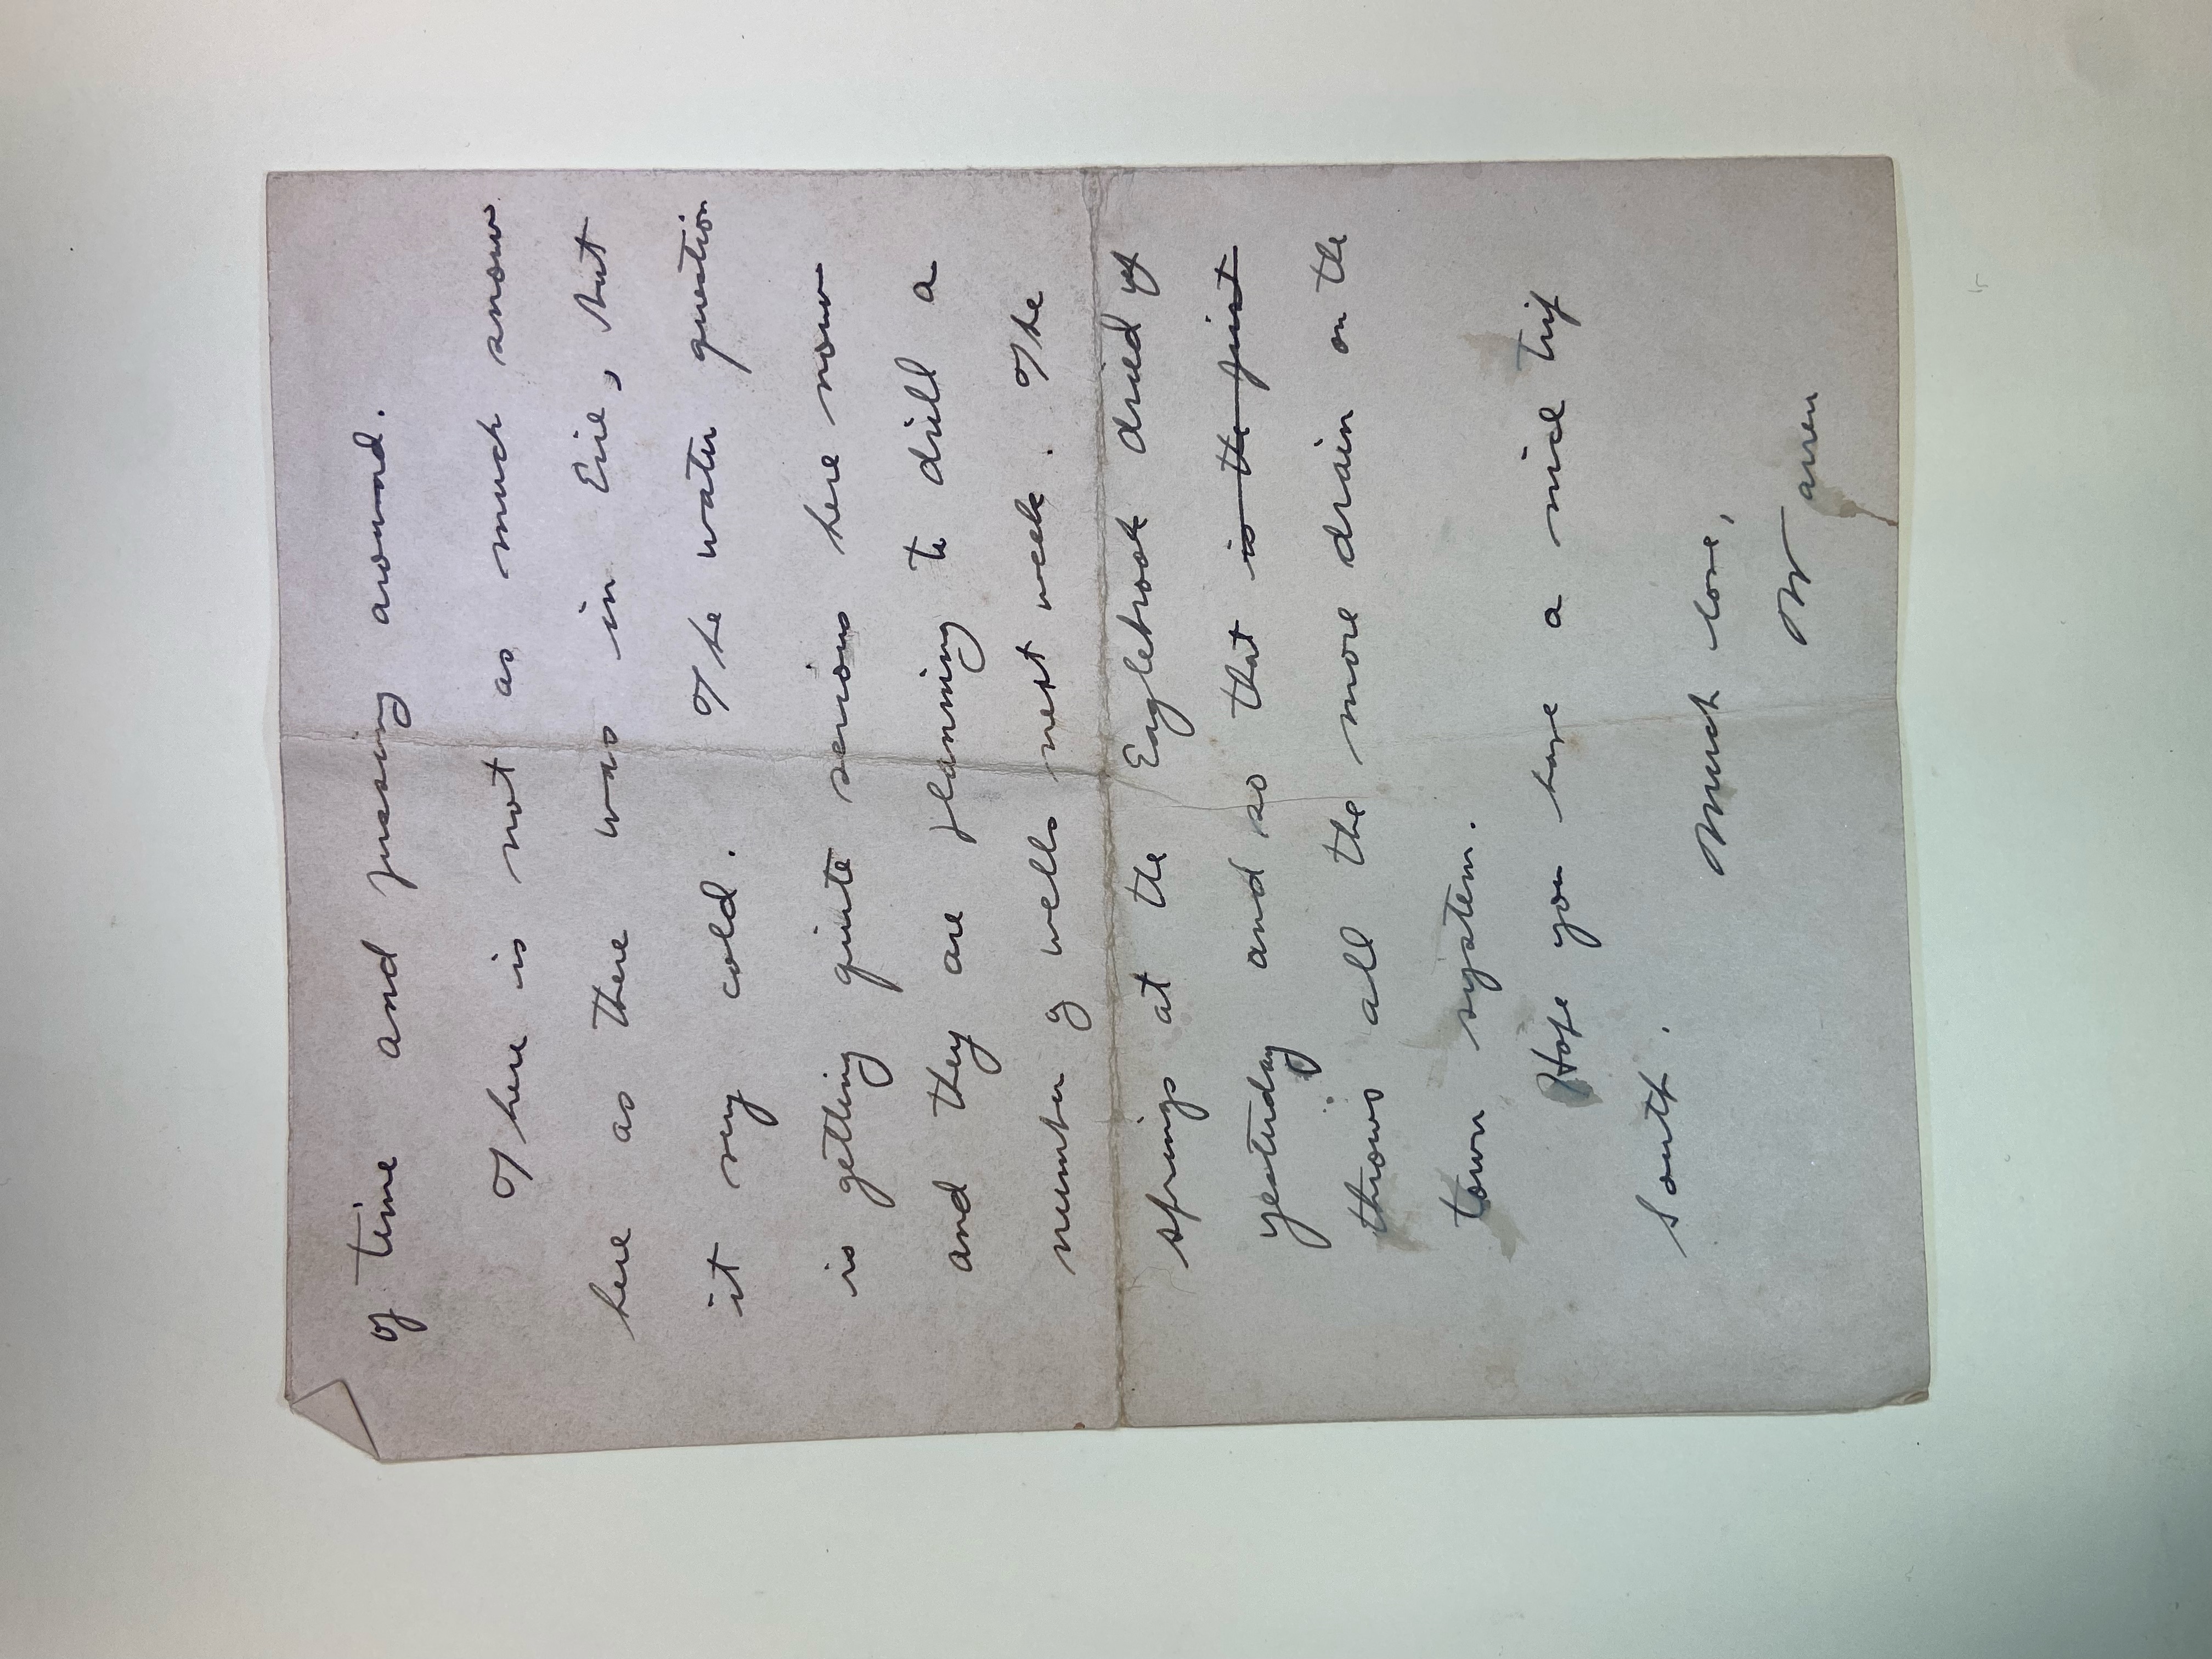 of time and fussing around.
There is not as much snow
here as there was in Erie, but
it very cold. The water question
is getting quite serious here now
and they are planning to drill a
number of wells next week. The
springs at the Eaglebrook dried up
yesterday and so that is the first
throws all the more drain on the
town system.
Hope you have a nice trip
south.
Much love,
Warren